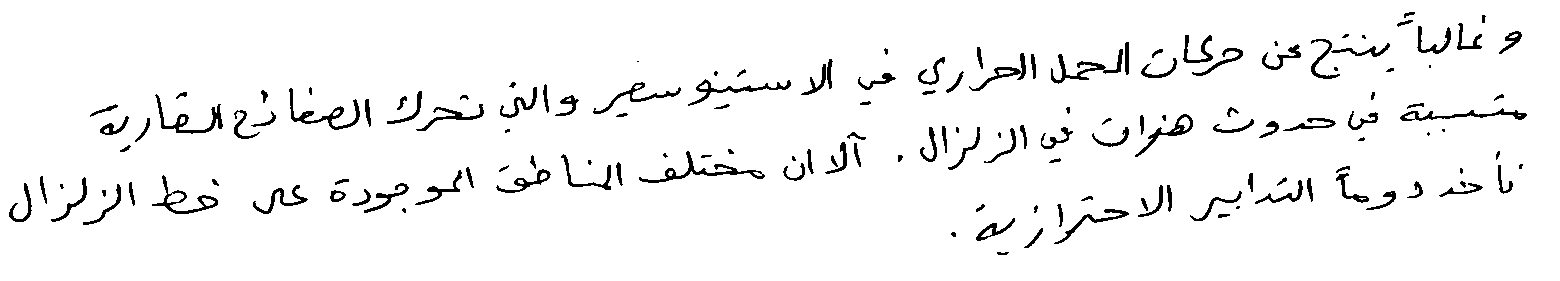 وغالباً ينتج عن حركات الحمل الحراري في الاستينوسفير والتي تحرك الصفائح القارية
متسببة في حدوث هزات في الزلزال . آلا ان مختلف المناطق الموجودة على خط الزلزال
تأخذ دوماً التدابير الاحترازية .